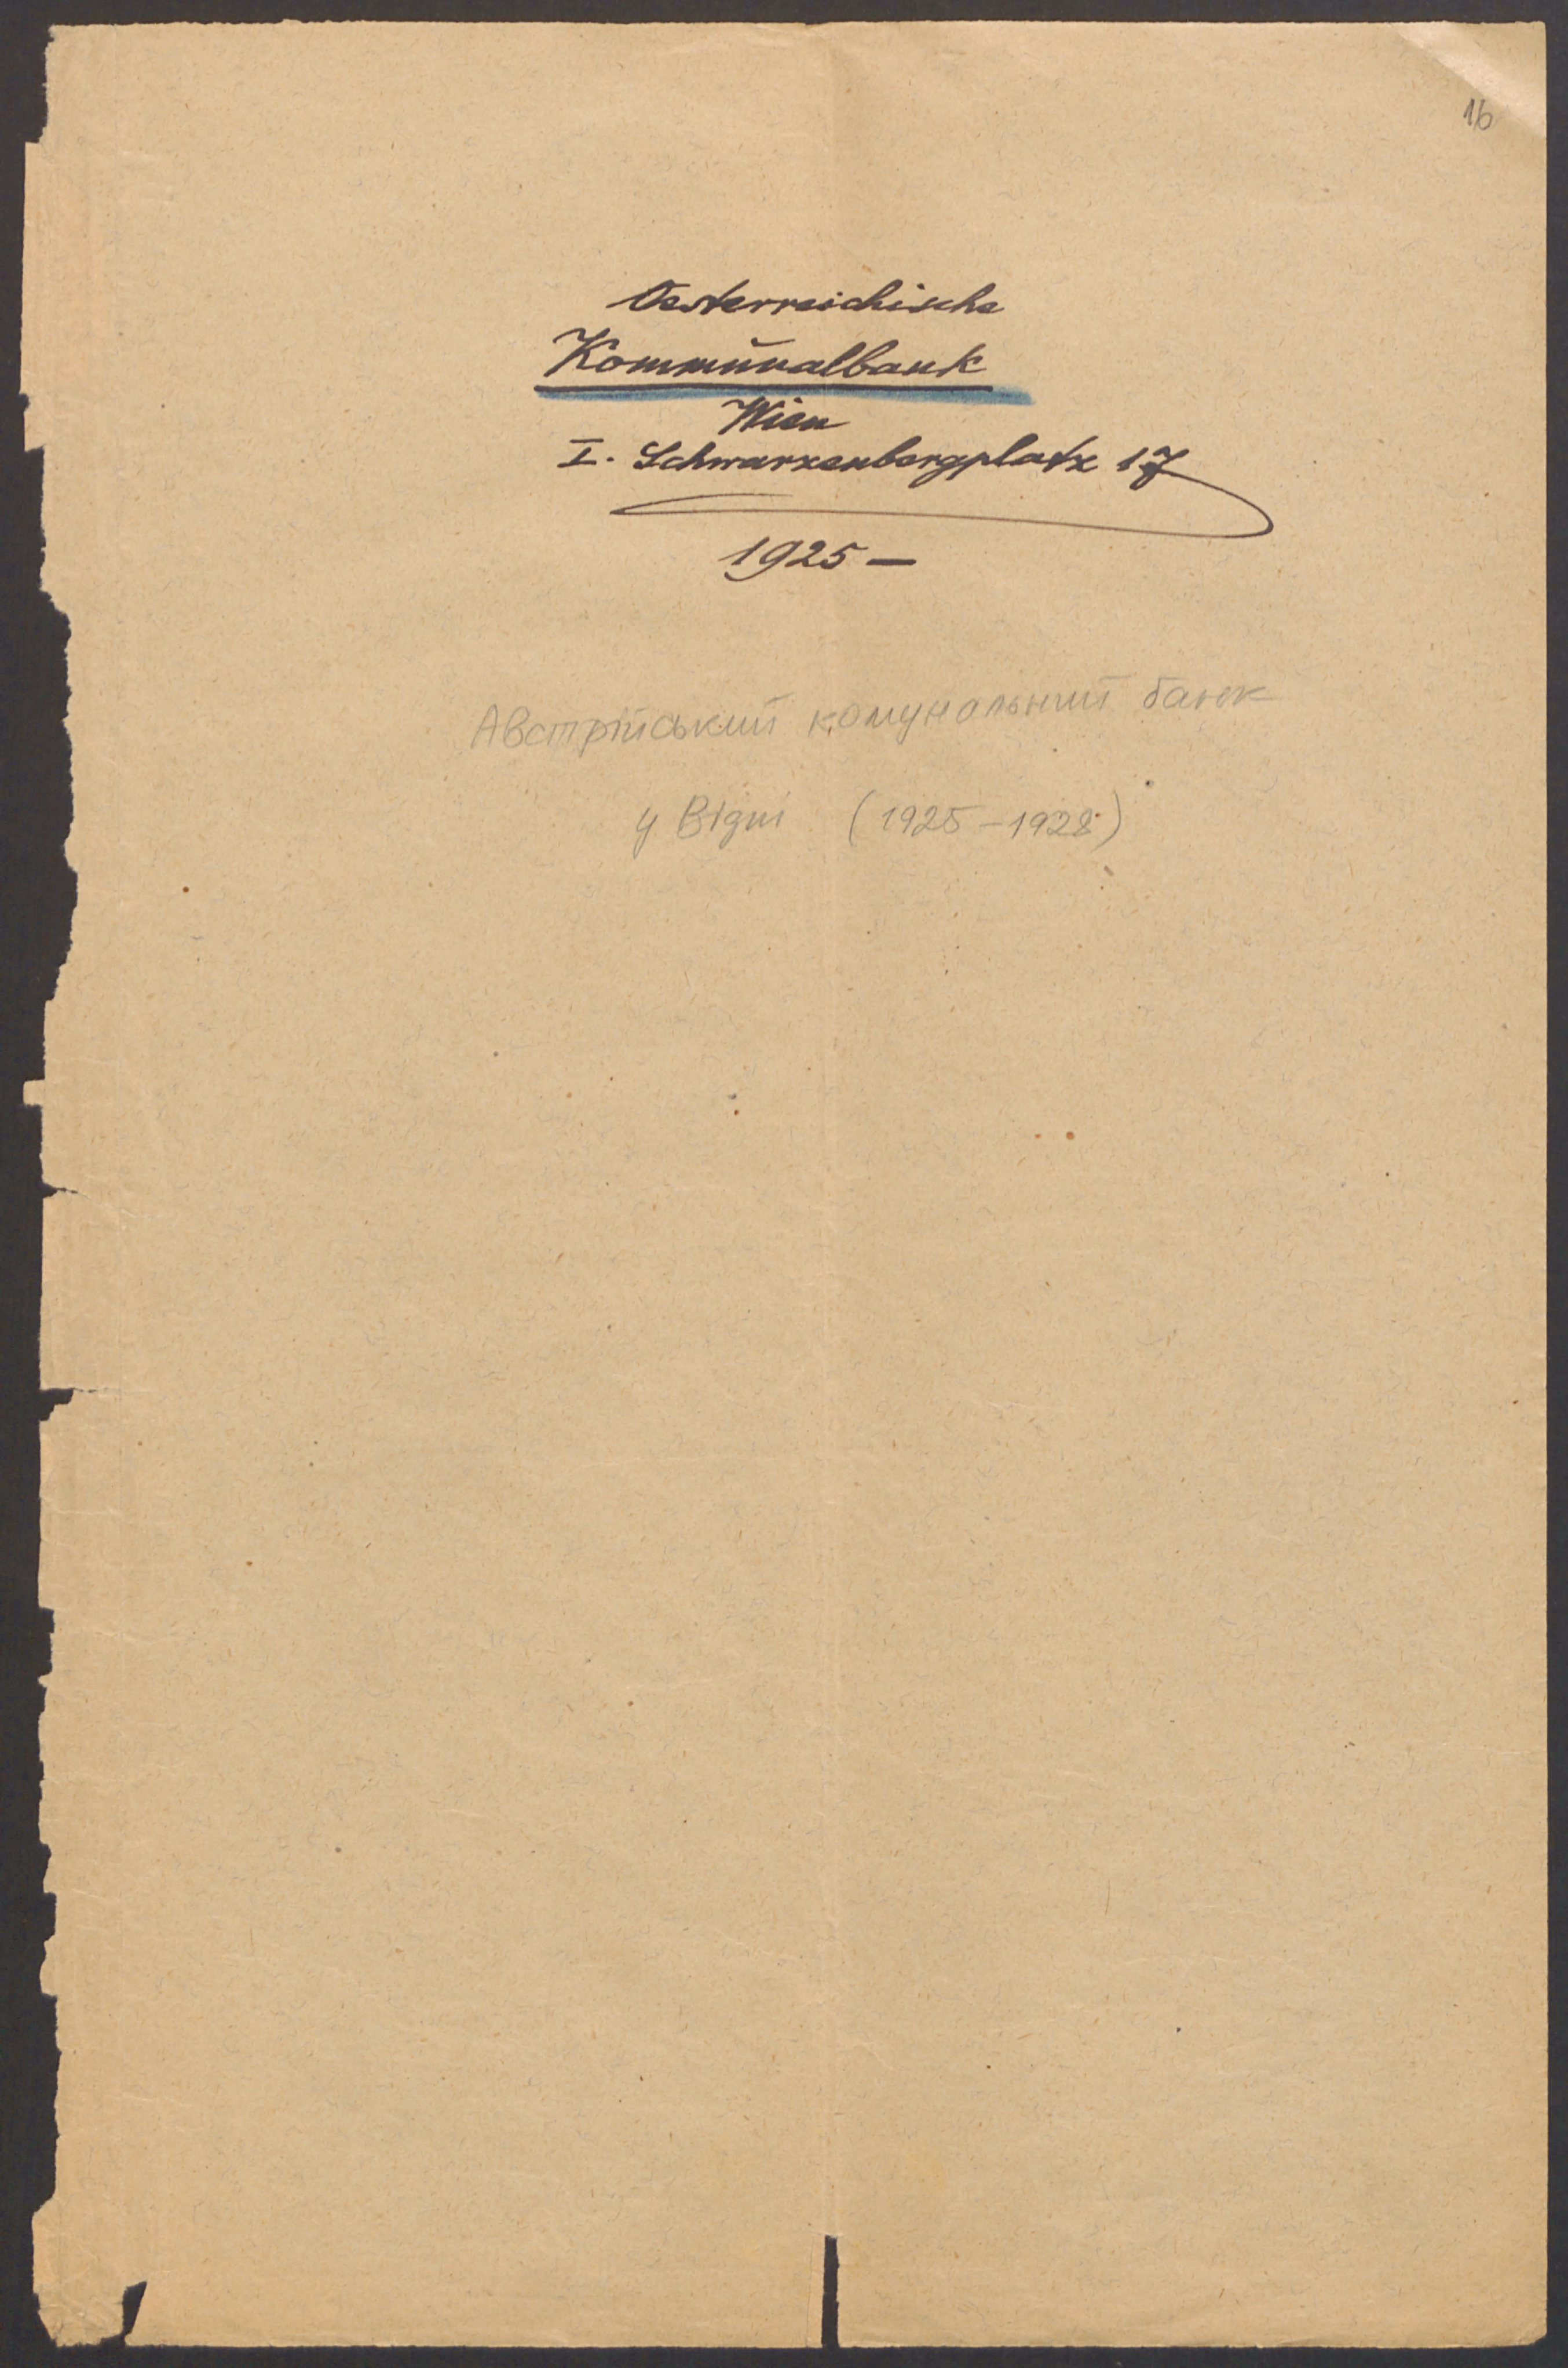 16
Oesterreichische
Kommunalbank
Wien
I. Schwarzenbergplatz 17
1925 —
Австрійський комунальний банк
у Відні (1925-1928)